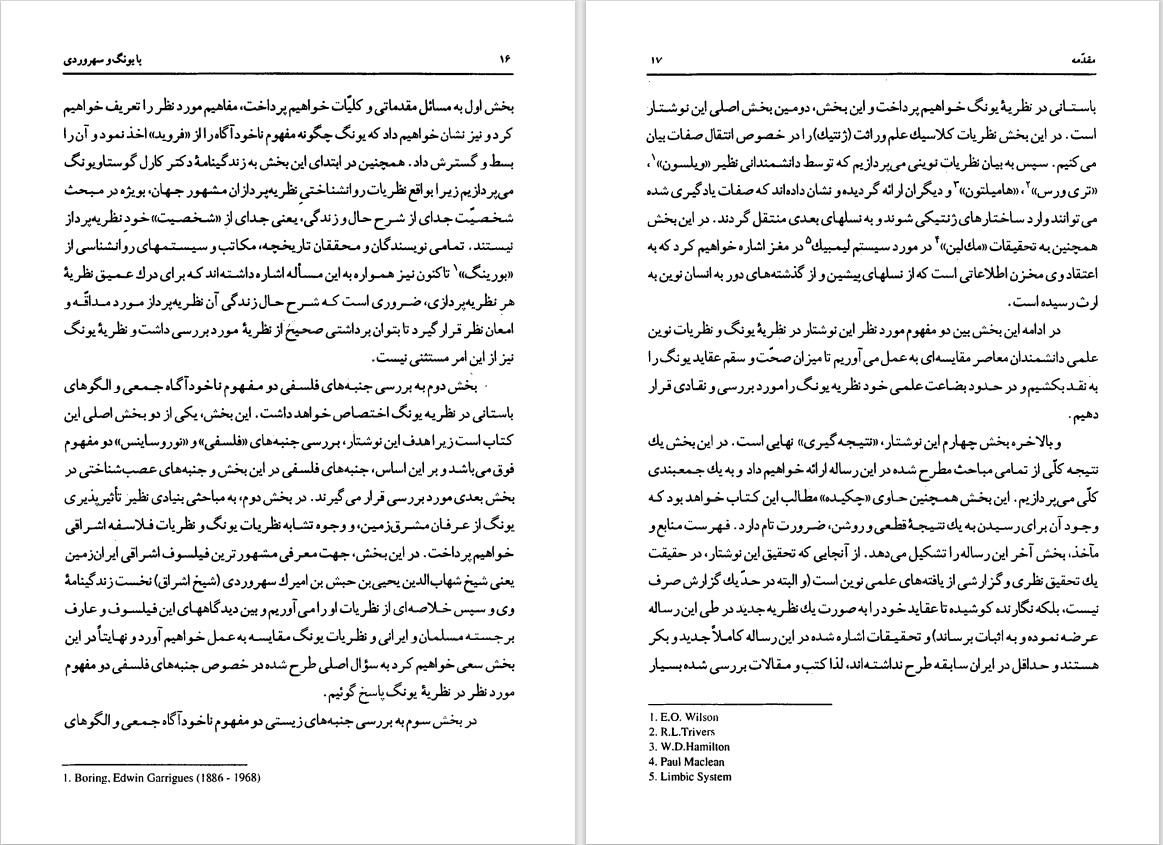 ۱۶
با یونگ و سهروردی
بخش اول به مسائل مقدماتی و کلیّات خواهیم پرداخت، مفاهیم مورد نظر را تعریف خواهیم
کرد و نیز نشان خواهیم داد که یونگ چگونه مفهوم ناخودآگاه را از «فروید» اخذ نمود و آن را
بسط و گسترش داد. همچنین در ابتدای این بخش به زندگینامهٔ دکتر کارل گوستاو یونگ
می‌پردازیم زیرا بواقع نظریات روانشناختیِ نظریه‌پردازان مشهور جهان، بویژه در مبحث
شخصیّت جدای از شرح حال و زندگی، یعنی جدای از «شخصیت» خود نظریه‌پرداز
نیستند. تمامی نویسندگان و محققان تاریخچه، مکاتب و سیستمهای روانشناسی از
«بورینگ»۱ تاکنون نیز همواره به این مسأله اشاره داشته‌اند که برای درک عمیق نظریهٔ
هر نظریه‌پردازی، ضروری است که شرح حال زندگی آن نظریه‌پرداز مورد مداقّه و
امعان نظر قرار گیرد تا بتوان برداشتی صحیح از نظریهٔ مورد بررسی داشت و نظریهٔ یونگ
نیز از این امر مستثنی نیست.
بخش دوم به بررسی جنبه‌های فلسفی دو مفهوم ناخودآگاه جمعی و الگوهای
باستانی در نظریه یونگ اختصاص خواهد داشت. این بخش، یکی از دو بخش اصلی این
کتاب است زیرا هدف این نوشتار، بررسی جنبه‌های «فلسفی» و «نوروساینس» دو مفهوم
فوق می‌باشد و بر این اساس، جنبه‌های فلسفی در این بخش و جنبه‌های عصب‌شناختی در
بخش بعدی مورد بررسی قرار می‌گیرند. در بخش دوم، به مباحثی بنیادی نظیر تأثیرپذیری
یونگ از عرفان مشرق‌زمین، و وجوه تشابه نظریات یونگ و نظریات فلاسفه اشراقی
خواهیم پرداخت. در این بخش، جهت معرفی مشهورترین فیلسوف اشراقی ایران‌زمین
یعنی شیخ شهاب‌الدین یحیی‌بن حبش بن امیرك سهروردی (شیخ اشراق) نخست زندگینامهٔ
وی و سپس خلاصه‌ای از نظریات او را می‌آوریم و بین دیدگاههای این فیلسوف و عارف
برجسته مسلمان و ایرانی و نظریات یونگ مقایسه به عمل خواهیم آورد و نهایتاً در این
بخش سعی خواهیم کرد به سؤال اصلی طرح شده در خصوص جنبه‌های فلسفی دو مفهوم
مورد نظر در نظریهٔ یونگ پاسخ گوئیم.
در بخش سوم به بررسی جنبه‌های زیستی دو مفهوم ناخودآگاه جمعی و الگوهای
1. Boring, Edwin Garrigues (1886 - 1968)
مقدّمه
۱۷
باستانی در نظریهٔ یونگ خواهیم پرداخت و این بخش، دومین بخش اصلی این نوشتار
است. در این بخش نظریات کلاسیك علم وراثت (ژنتیك) را در خصوص انتقال صفات بیان
می‌کنیم. سپس به بیان نظریات نوینی می‌پردازیم که توسط دانشمندانی نظیر «ویلسون»۱،
«تری ورس»۲، «هامیلتون»۳ و دیگران ارائه گردیده و نشان داده‌اند که صفات یادگیری شده
می‌توانند وارد ساختارهای ژنتیکی شوند و به نسلهای بعدی منتقل گردند. در این بخش
همچنین به تحقیقات «مك‌لین»۴ در مورد سیستم لیمبیك۵ در مغز اشاره خواهیم کرد که به
اعتقاد وی مخزن اطلاعاتی است که از نسلهای پیشین و از گذشته‌های دور به انسان نوین به
ارث رسیده است.
در ادامه این بخش بین دو مفهوم مورد نظر این نوشتار در نظریهٔ یونگ و نظریات نوین
علمی دانشمندان معاصر مقایسه‌ای به عمل می‌آوریم تا میزان صحّت و سقم عقاید یونگ را
به نقد بکشیم و در حدود بضاعت علمی خود نظریه یونگ را مورد بررسی و نقادی قرار
دهیم.
و بالاخره بخش چهارم این نوشتار، «نتیجه گیری» نهایی است. در این بخش یك
نتیجه کلّی از تمامی مباحث مطرح شده در این رساله ارائه خواهیم داد و به یك جمعبندی
کلّی می‌پردازیم. این بخش همچنین حاوی «چکیده» مطالب این کتاب خواهد بود که
وجود آن برای رسیدن به یك نتیجهٔ قطعی و روشن، ضرورت تام دارد. فهرست منابع و
مآخذ، بخش آخر این رساله را تشکیل می‌دهد. از آنجایی که تحقیق این نوشتار، در حقیقت
یك تحقیق نظری و گزارشی از یافته‌های علمی نوین است (و البته در حدّ یك گزارش صرف
نیست، بلکه نگارنده کوشیده تا عقاید خود را به صورت یك نظریه جدید در طی این رساله
عرضه نموده و به اثبات برساند) و تحقیقات اشاره شده در این رساله کاملاً جدید و بکر
هستند و حداقل در ایران سابقه طرح نداشته‌اند، لذا کتب و مقالات بررسی شده بسیار
1. E.O. Wilson
2. R.L.Trivers
3. W.D.Hamilton
4. Paul Maclean
5. Limbic System